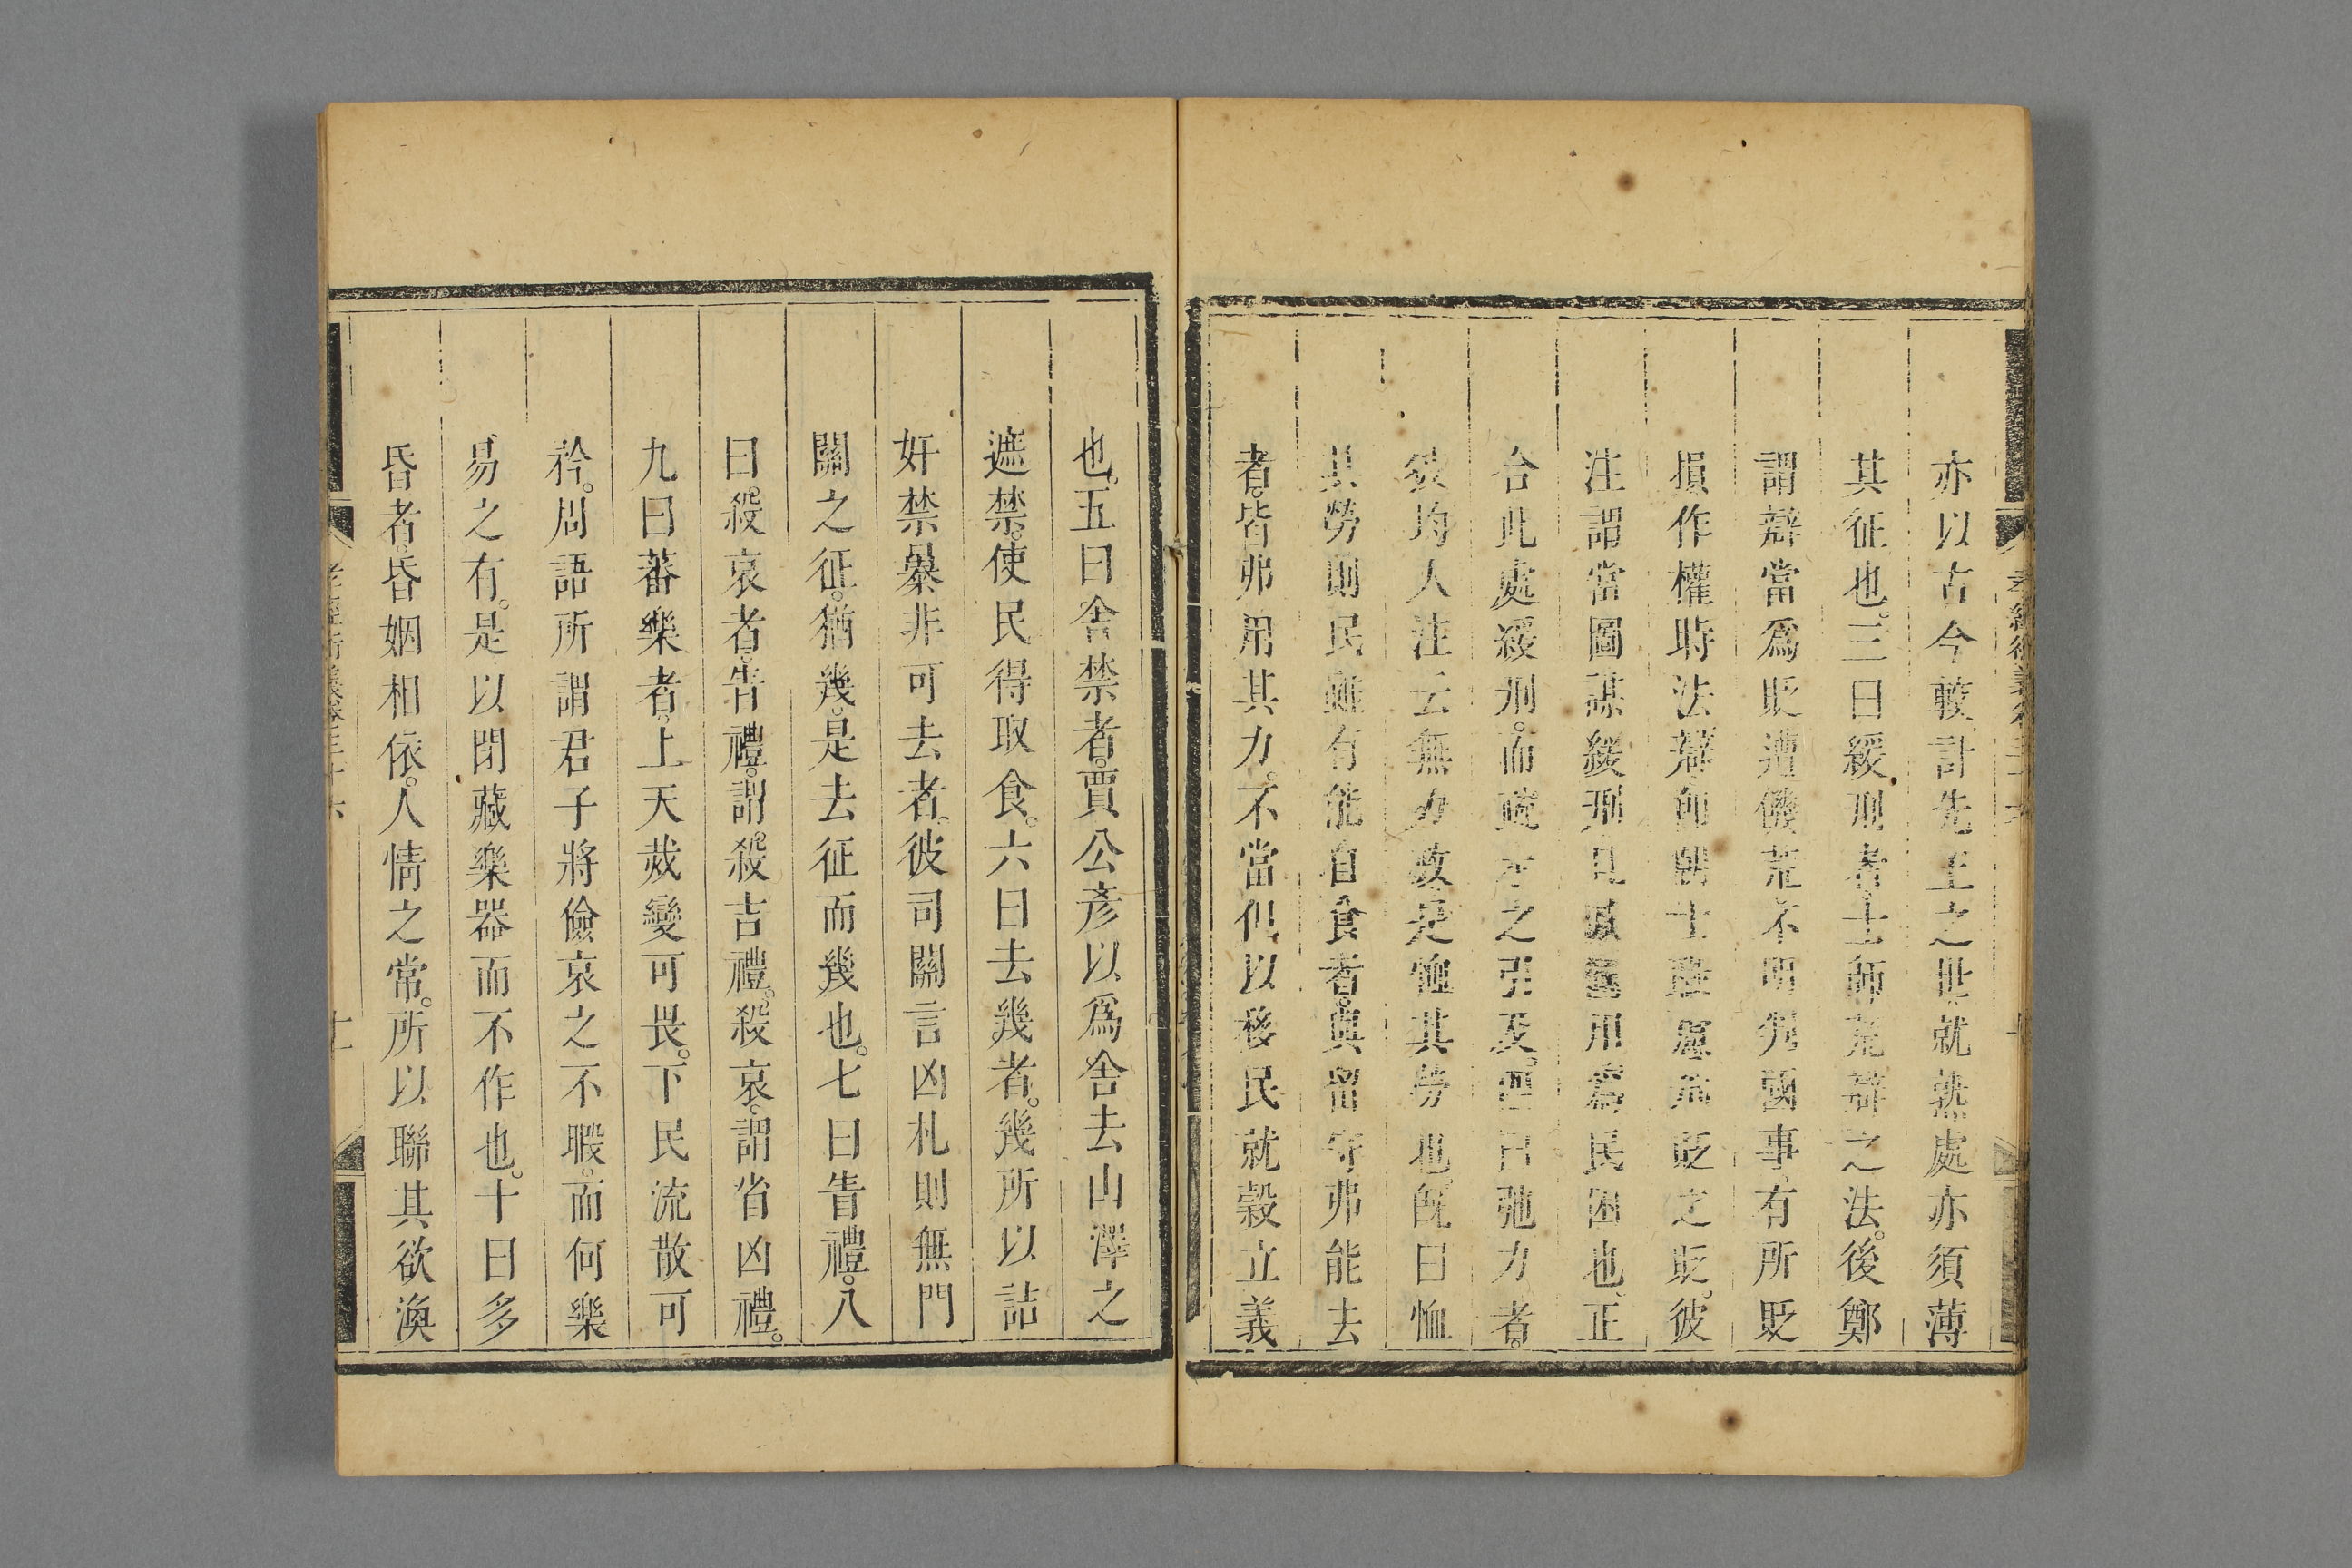 亦以古今較計先王之世就熟處亦須薄
其征也。三曰緩刑者士師荒辯之法。後鄭
謂辯當爲貶遭饑荒不明判國事有所貶
損作權時法辯卽朝士慮刑貶之貶。彼
注謂當圖謀緩刑且減國用爲民困也。正
合此處緩刑。而之引及。四曰弛力者。
均人注云無力政是恤其勞也旣曰恤
其勞則民雖有能自食者。與留守弗能去
者。皆弗用其力。不當但以移民就穀立義
也。五曰舍禁者。賈公彥以爲舍去山澤之
遮禁。使民得取食。六曰去幾者。幾所以詰
奸禁暴非可去者。彼司關言凶札則無門
關之征。猶幾。是去征而幾也。七曰眚禮。八
曰。殺哀者。眚禮。謂殺吉禮。殺哀。謂省凶禮。
九曰蕃樂者。上天烖變可畏。下民流散可
矜。周語所謂君子將儉哀之不暇。而何樂
易之有。是以閉藏樂器而不作也。十曰多
昏者。昏姻相依。人情之常。所以聯其欲渙